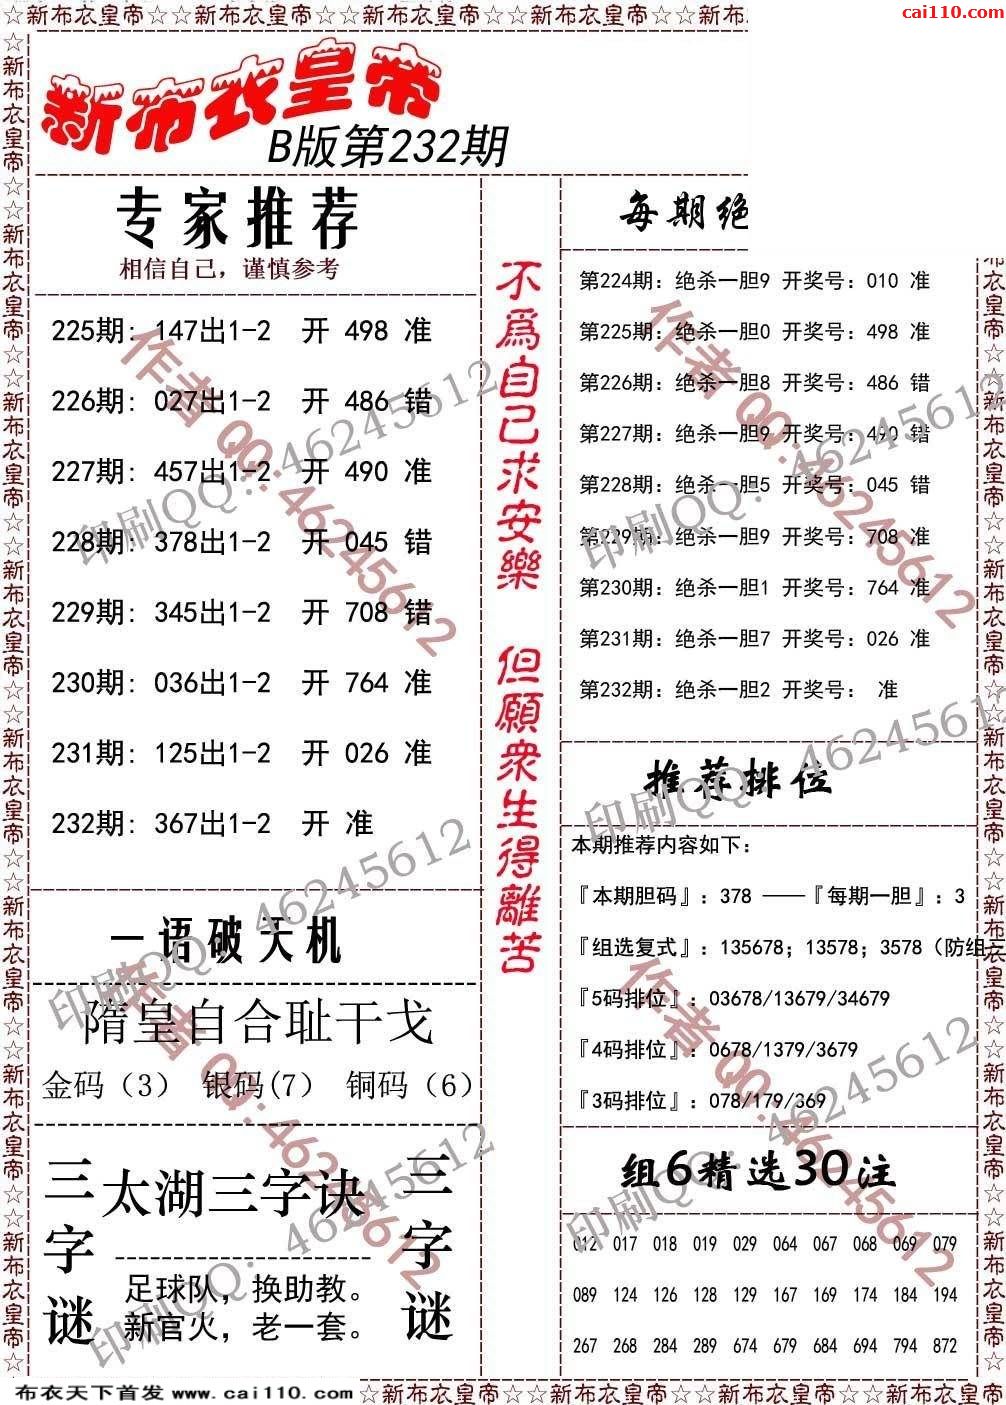 ☆新布衣皇帝☆☆新布衣皇帝☆☆新布衣皇帝☆☆新布衣皇帝☆☆新布
cai110.com
新布衣皇帝
B版第232期
专家推荐
相信自己，谨慎参考
225期: 147出1-2 开 498 准
226期: 027出1-2 开 486 错
227期: 457出1-2 开 490 准
228期: 378出1-2 开 045 错
229期: 345出1-2 开 708 错
230期: 036出1-2 开 764 准
231期: 125出1-2 开 026 准
232期: 367出1-2 开 准
一语破天机
隋皇自合耻干戈
金码（3） 银码(7） 铜码（6）
三字谜
太湖三字诀
足球队，换助教。
新官火，老一套。
三字谜
不爲自己求安樂 但願衆生得離苦
每期绝
第224期: 绝杀一胆9 开奖号: 010 准
第225期: 绝杀一胆0 开奖号: 498 准
第226期: 绝杀一胆8 开奖号: 486 错
第227期: 绝杀一胆9 开奖号: 490 错
第228期: 绝杀一胆5 开奖号: 045 错
第229期: 绝杀一胆9 开奖号: 708 准
第230期: 绝杀一胆1 开奖号: 764 准
第231期: 绝杀一胆7 开奖号: 026 准
第232期: 绝杀一胆2 开奖号: 准
推荐排位
本期推荐内容如下:
『本期胆码』: 378 ——『每期一胆』: 3
『组选复式』: 135678; 13578; 3578（防组三
『5码排位』: 03678/13679/34679
『4码排位』: 0678/1379/3679
『3码排位』: 078/179/369
组6精选30注
012 017 018 019 029 064 067 068 069 079
089 124 126 128 129 167 169 174 184 194
267 268 284 289 674 679 684 694 794 872
作者 QQ: 46245612
印刷QQ: 46245612
作者 QQ: 46245612
印刷QQ: 46245612
印刷QQ: 46245612
印刷QQ: 46245612
作者 QQ: 46245612
作者 QQ: 46245612
印刷QQ: 46245612
印刷QQ: 46245612
☆新布衣皇帝☆☆新布衣皇帝☆☆新布衣皇帝☆☆新布衣皇帝☆☆新布衣皇帝☆☆新布衣皇帝☆☆新布衣皇帝☆☆新布衣皇帝☆
衣皇帝☆☆新布衣皇帝☆☆新布衣皇帝☆☆新布衣皇帝☆☆新布衣皇帝☆☆新布衣皇帝☆☆新布衣皇帝☆
布衣天下首发 www.cai110.com ☆新布衣皇帝☆☆新布衣皇帝☆☆新布衣皇帝☆☆新布衣皇帝☆